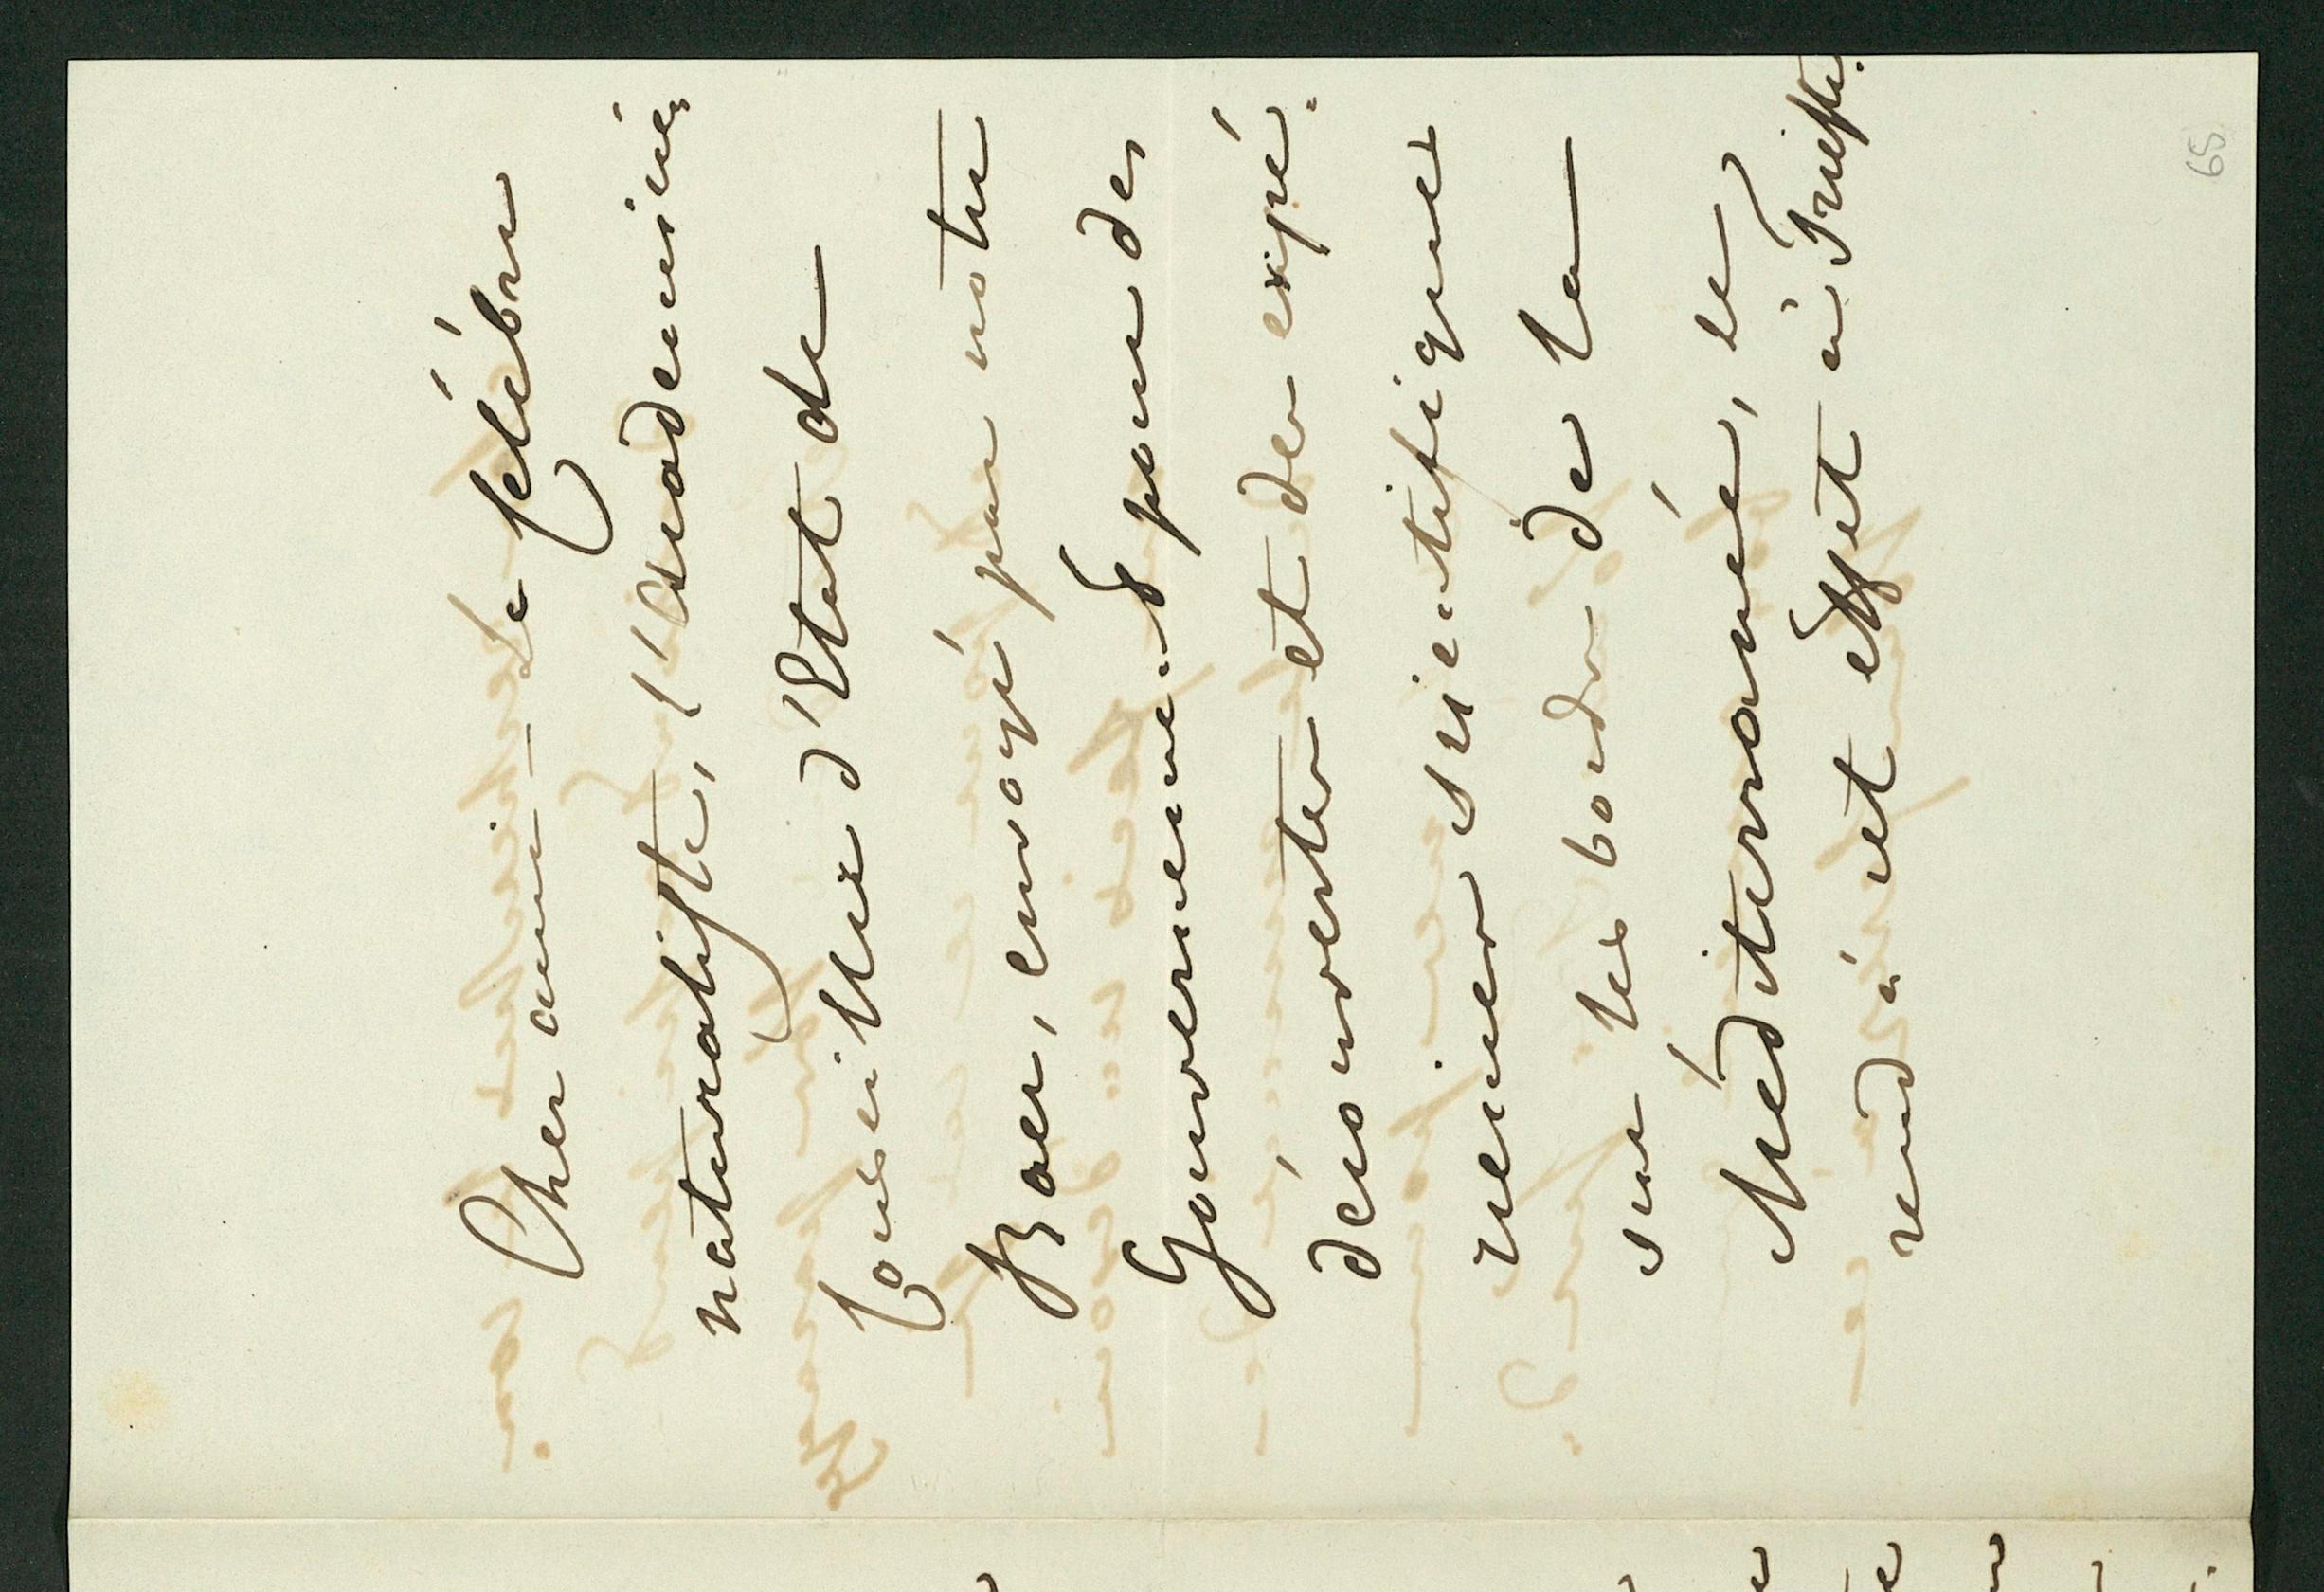 65
Cher ami – Le célébre
naturaliste, l'Académicien
Conseiller d'Etat de
Baer, envoyé par notre
Gouvernement pour des
découvertes et des expé-
riences scientifiques
sur les bords de la
Méditerranée, se
rend à cet effet à Trieste.